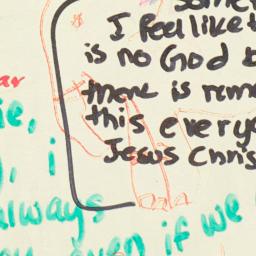 some
I feel like t
is no God b
ment is rem
this every
Jesus Chris
ar
ie,
, i
always
even if we